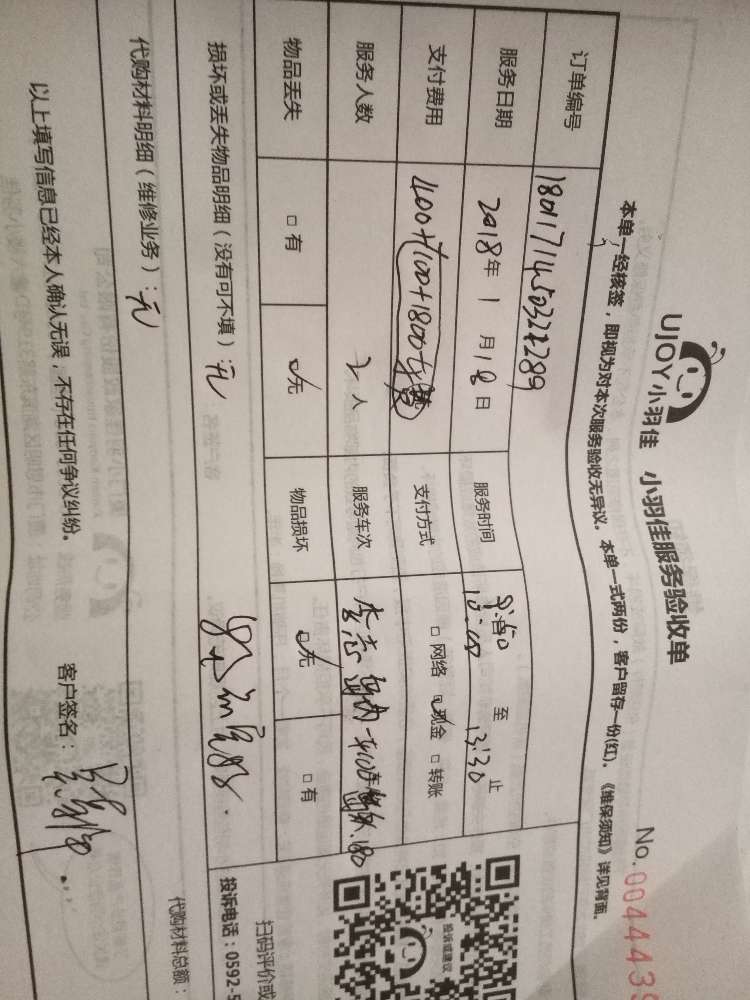 UJOY小羽佳 小羽佳服务验收单
No. 0044439
本单一经核签，即视为对本次服务验收无异议。本单一式两份，客户留存一份(红)。《维保须知》详见背面。
订单编号 180117145032289
服务日期 2018年1月18日 服务时间 10:00 至 13:30 止
支付费用 支付方式 □网络 ☑现金 □转账
服务人数 2人 服务车次
物品丢失 □有 ☑无 物品损坏 ☑无 □有
损坏或丢失物品明细（没有可不填）：无
代购材料明细（维修业务）：无
代购材料总额：
以上填写信息已经本人确认无误，不存在任何争议纠纷。 客户签名：
投诉或建议
扫码评价或
投诉电话：0592-5